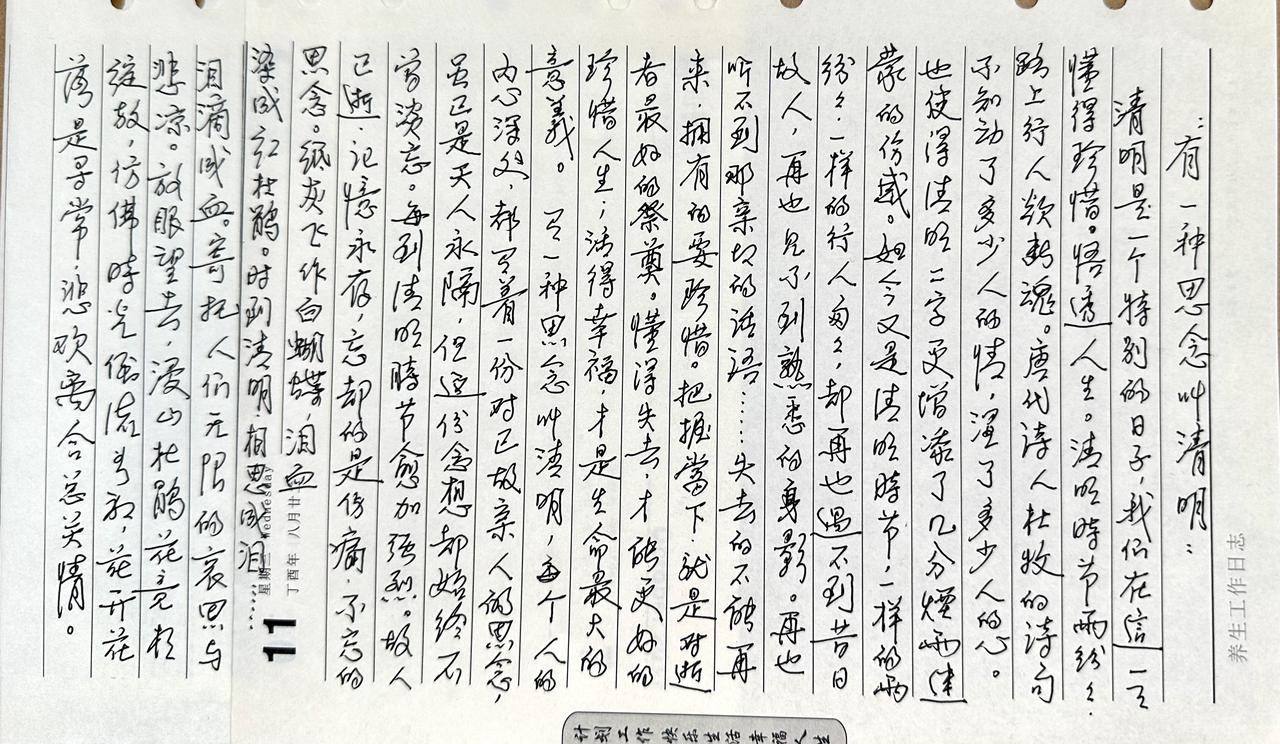 ：有一种思念叫清明：
清明是一个特别的日子，我们在這一天
懂得珍惜。悟透人生。清明時节雨纷々，
路上行人欲断魂。唐代诗人杜牧的诗句
不知动了多少人的情，湿了多少人的心。
也使得清明二字更增添了几分煙雨迷
蒙的伤感。如今又是清明時节，一样的雨
纷々，一样的行人匆々，却再也遇不到昔日
故人，再也见不到熟悉的身影。再也
听不到那亲切的话语……失去的不能再
来，拥有的要珍惜。把握當下，就是对逝
者最好的祭奠。懂得失去，才能更好的
珍惜人生；活得幸福，才是生命最大的
意義。 有一种思念叫清明，每个人的
内心深处，都有着一份对已故亲人的思念，
虽已是天人永隔，但這份念想却始终不
曾淡忘。每到清明時节愈加强烈。故人
已逝，记憶永存，忘却的是伤痛，不忘的
思念。纸灰飞作白蝴蝶，泪血
染成红杜鹃。时到清明，相思成泪……
泪滴成血。寄托人们无限的哀思与
悲凉。放眼望去，漫山杜鹃花竞相
绽放，仿佛時光倒流当初，花开花
落是寻常，悲欢离合总关情。
养生工作日志
11
星期三 Wednesday
丁酉年 八月廿
计划工作 快乐生活 幸福人生